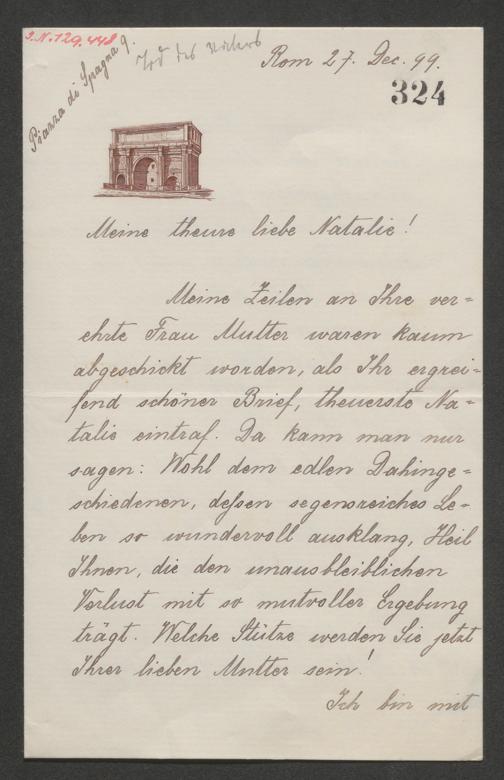 J.N. 129.448
Tod des Vaters
Rom 27. Dec. 99.
Piazza di Spagna 9.
324
Meine theure liebe Natalie!
Meine Zeilen an Ihre ver=
ehrte Frau Mutter waren kaum
abgeschickt worden, als Ihr ergrei=
fend schöner Brief, theuerste Na=
talie eintraf. Da kann man nur
sagen: Wohl dem edlen Dahinge=
schiedenen, deſsen segensreiches Le=
ben so wundervoll ausklang, Heil
Ihnen, die den unausbleiblichen
Verlust mit so mutvoller Ergebung
trägt. Welche Stütze werden Sie jetzt
Ihrer lieben Mutter sein!
Ich bin mit